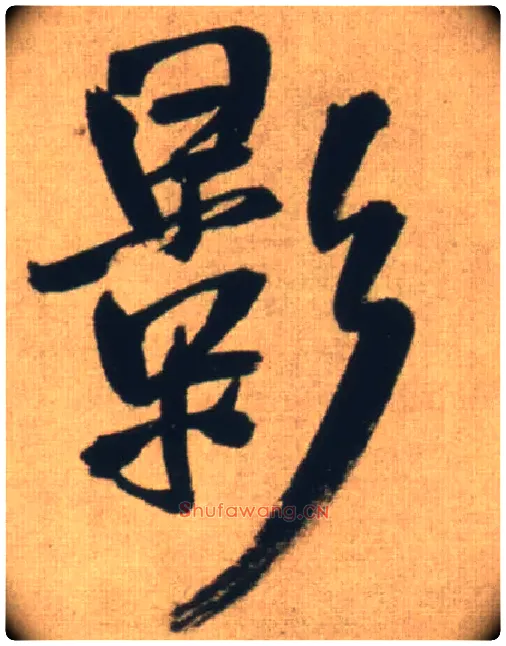 影
Shufawang.CN